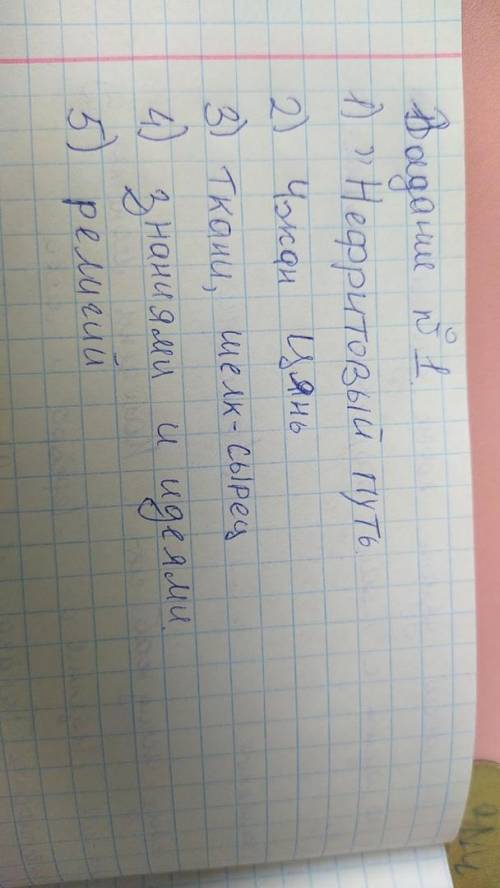 Задание № 1
1) "Нефритовый путь
2) Чжан Цянь
3) Ткани, шелк-сырец
4) Знаниями и идеями.
5) религий